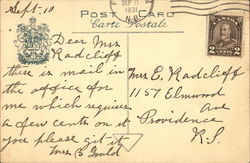 Sept. 10
SEP 11
1931
N.B.
POST CARD
Carte Postale
2 2
Dear Mrs
Radcliff
there is mail in
the office for
me which requires
a few cents on it
you please git it
Mrs B Guild
Mrs E. Radcliff
1157 Elmund
Ave
Providence
R.I.